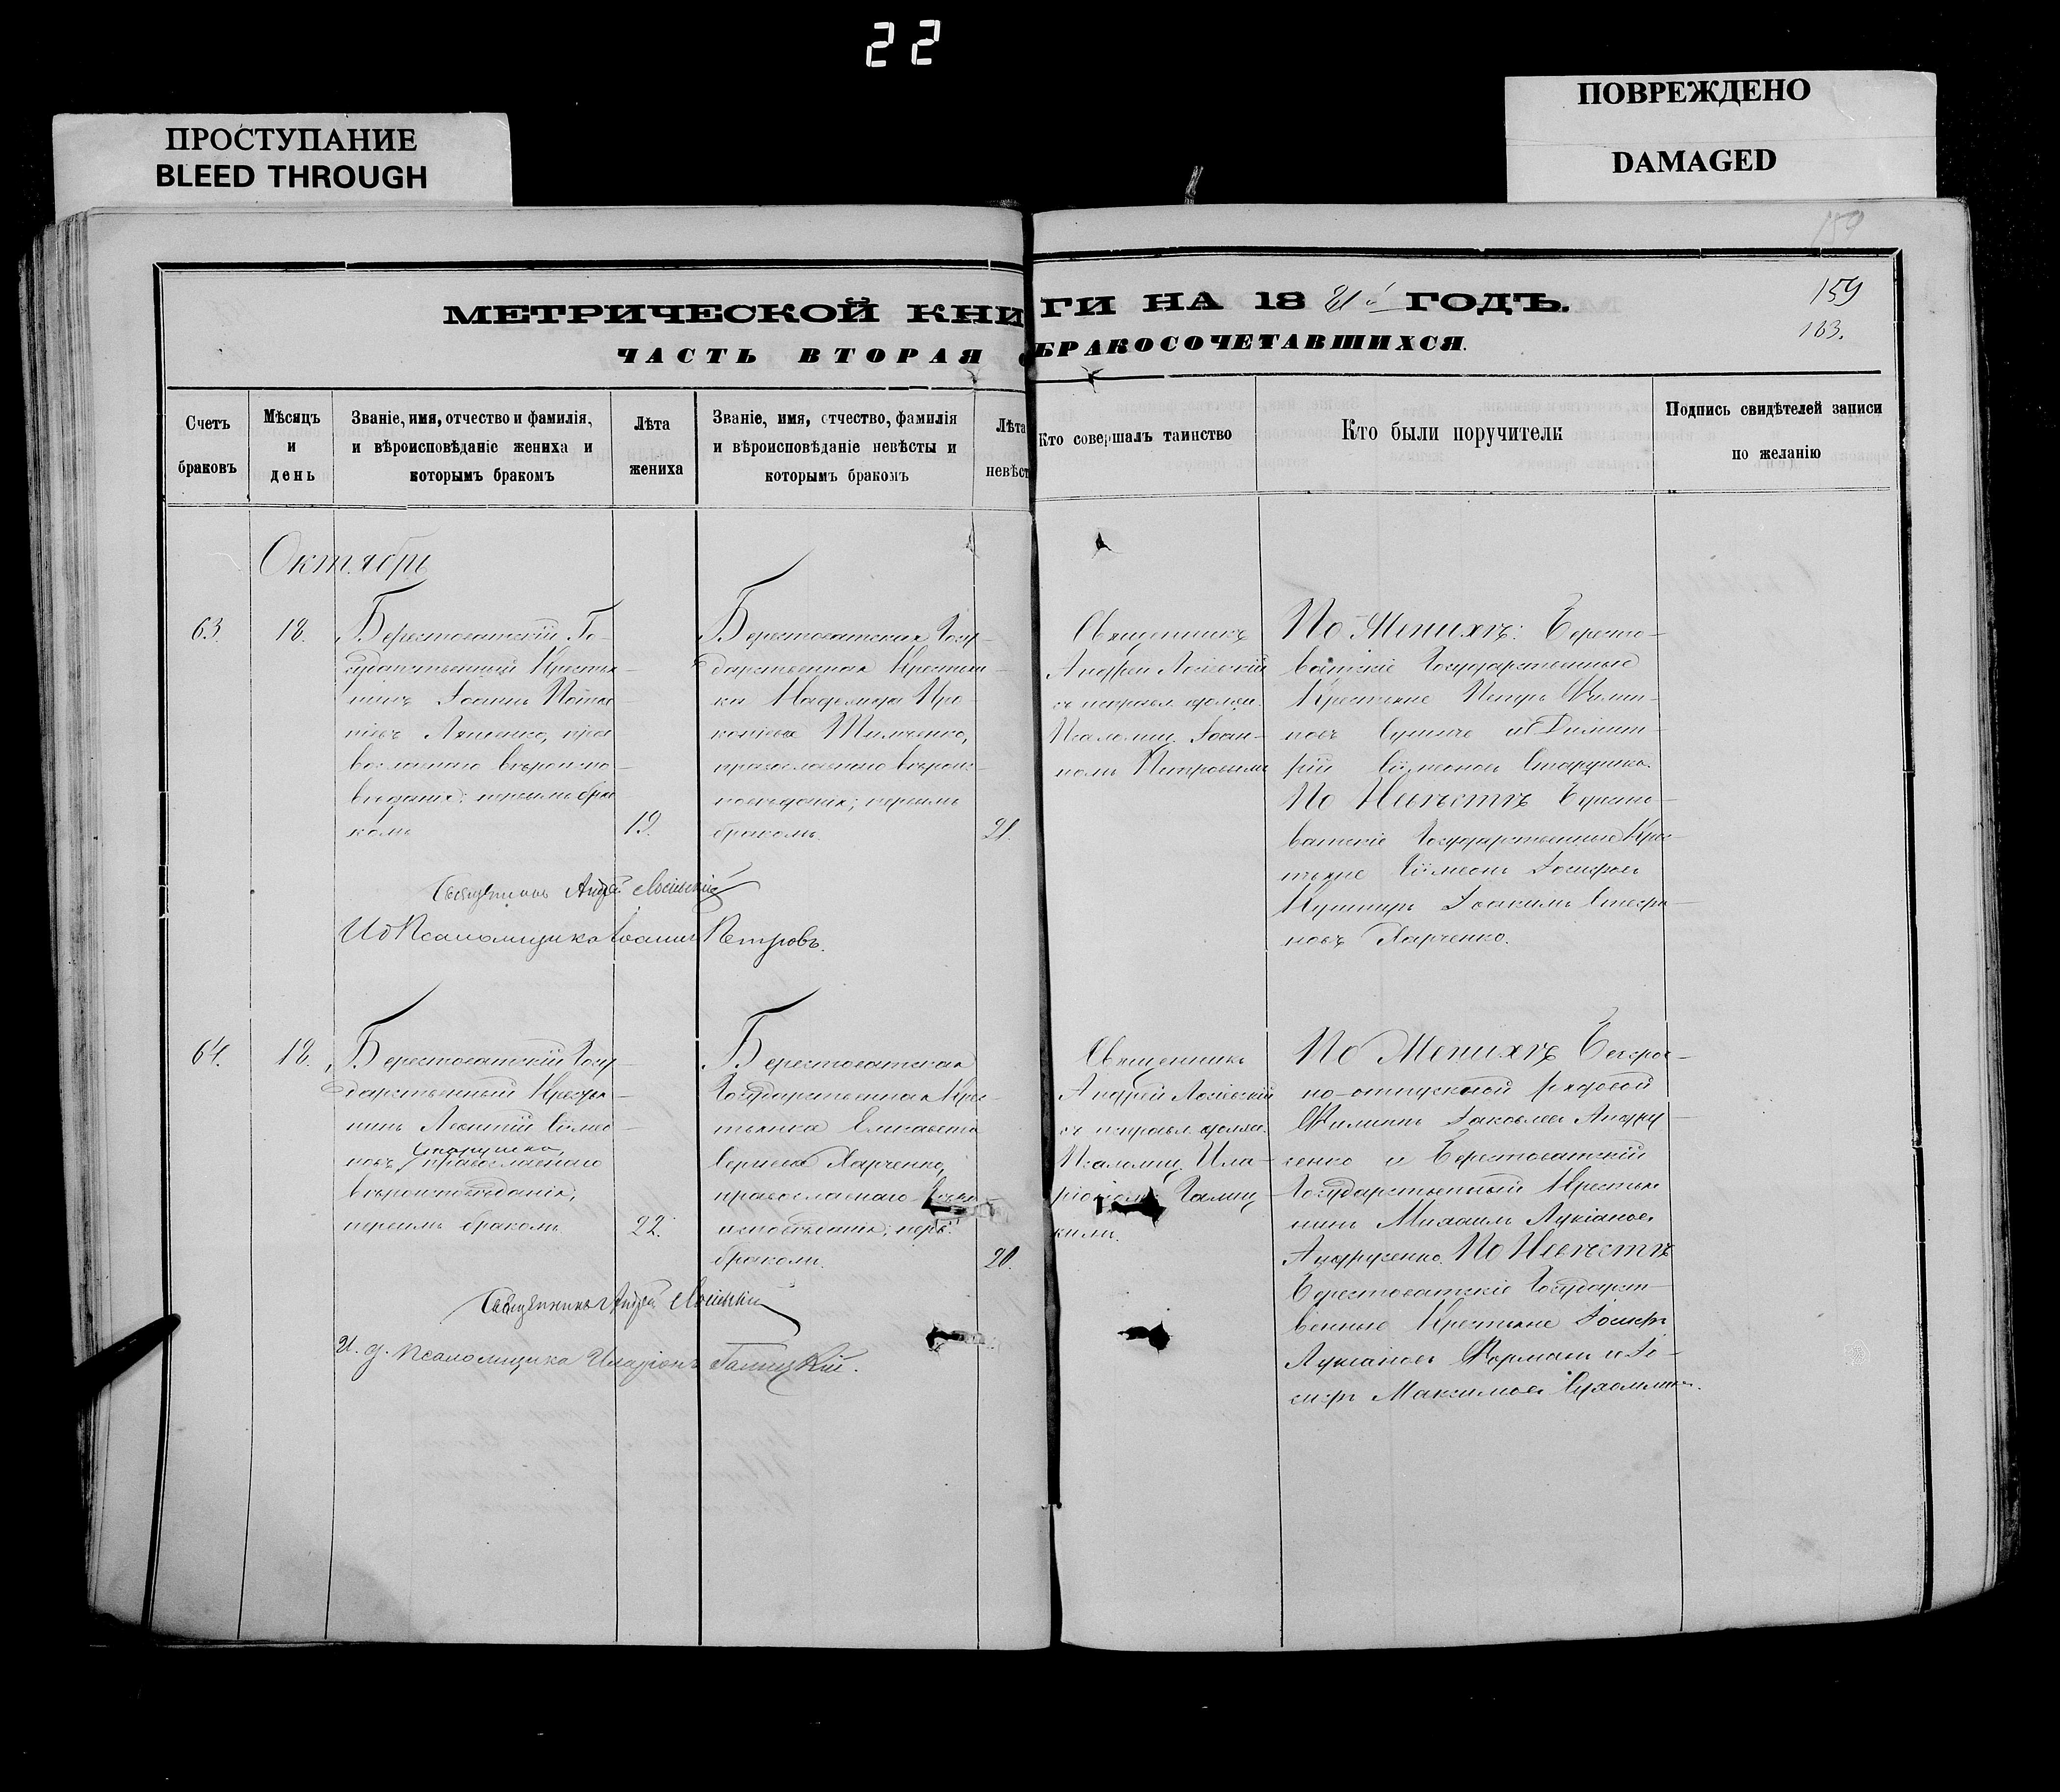 22
ПРОСТУПАНИЕ
BLEED THROUGH
ПОВРЕЖДЕНО
DAMAGED
159
163.
МЕТРИЧЕСКОЙ КНИГИ НА 1881й ГОДЪ.
ЧАСТЬ ВТОРАЯ О БРАКОСОЧЕТАВШИХСЯ.
Счетъ
браковъ
Мѣсяцъ
и
день
Званіе, имя, отчество и фамилія,
и вѣроисповѣданіе жениха и
которымъ бракомъ
Лѣта
жениха
Званіе, имя, отчество, фамилія
и вѣроисповѣданіе невѣсты и
которымъ бракомъ
Лѣта
невѣст
Кто совершалъ таинство
Кто были поручители
Подпись свидѣтелей записи
по желанію
Октябрь
63.
18.
Берестоватскій Го-
сударственный Крестья-
нинъ Іоаннъ
Ляшенко, пра-
вославнаго вѣроиспо-
вѣданія; первымъ бра-
комъ
19.
Берестоватская Госу-
дарственная Крестьян-
ка Про-
копіева Шимченко,
православнаго вѣроис-
повѣданія; первымъ
бракомъ.
21.
Священникъ
Андрей Лосіевскій
съ исправл. должн.
Псаломщ. Іоан-
номъ Петровымъ
По Женихѣ: Бересто-
ватскіе Государственные
Крестьяне Петръ Филип-
повъ и Димит-
рій Сѵмеоновъ Старушко.
По Невѣстѣ Бересто-
ватскіе Государственные Крес-
тьяне Сѵмеонъ Іосифовъ
Кушниръ Іоакимъ Стефа-
новъ Харченко.
Священникъ Андрей Лосіевскій
Ид Псаломщика Іоаннъ Петровъ.
64.
18.
Берестоватскій Госу-
дарственный Крестья-
нинъ Леонтій Сѵмео-
новъ Старушко, православнаго
вѣроисповѣданія,
первымъ бракомъ
22.
Берестоватская
Государственная Крес-
тьянка Елисавета
Сергіева Харченко,
православнаго вѣро-
исповѣданія; перв.
бракомъ.
20.
Священникъ
Андрей Лосіевскій
съ исправл. должн.
Псаломщ. Ила-
ріономъ Галиц-
кимъ.
По Женихѣ Безсроч-
но-отпускной рядовой
Филиппъ Іаковлевъ Андру-
сенко и Берестоватскій
Государственный Крестья-
нинъ Михаилъ Лукіановъ
Андрусенко. По Невѣстѣ
Берестоватскіе Государст-
венные Крестьяне Іосифъ
Лукіановъ и Іо-
сифъ Максимовъ Сухомлинъ.
Священникъ Андрей Лосіевскій
И. д. псаломщика Иларіонъ Галицкій.